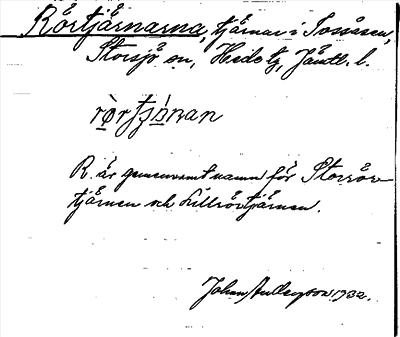 Rörtjärnarna, tjärnar i Tossåsen,
Storsjö sn, Hede tg, Jämtl. l.
rø̀rtʃǿnan
R. är gemensamt namn för Storrör-
tjärnen och Lillrörtjärnen.
Johan 1932.